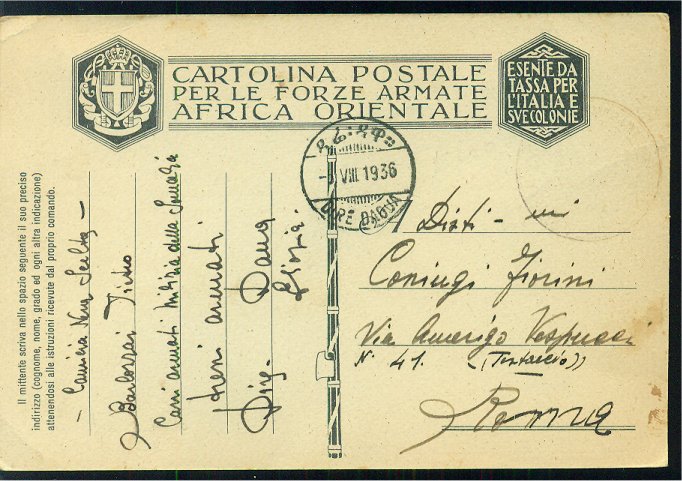 CARTOLINA POSTALE
PER LE FORZE ARMATE
AFRICA ORIENTALE
ESENTE DA
TASSA PER
L'ITALIA E
SVE COLONIE
ድሬ፡ዳዋ።
VIII 1936
DIRE DAOUA
Il mittente scriva nello spazio seguente il suo preciso
indirizzo (cognome, nome, grado ed ogni altra indicazione)
attenendosi alle istruzioni ricevute dal proprio comando.
- Camicia Nera Scelta -
Carri armati Milizia della Somalia
Treni armati
Dire Daua
Coniugi Fiorini
Via Amerigo Vespucci
N. 41. (Testaccio)
Roma